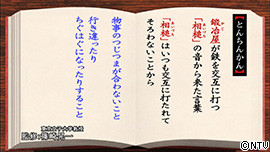 【とんちんかん】
鍛冶屋が鉄を交互に打つ
「相槌」の音から来た言葉
「相槌」はいつも交互に打たれて
そろわないことから
物事のつじつまが合わないこと
行き違ったり
ちぐはぐになったりすること
©NTV